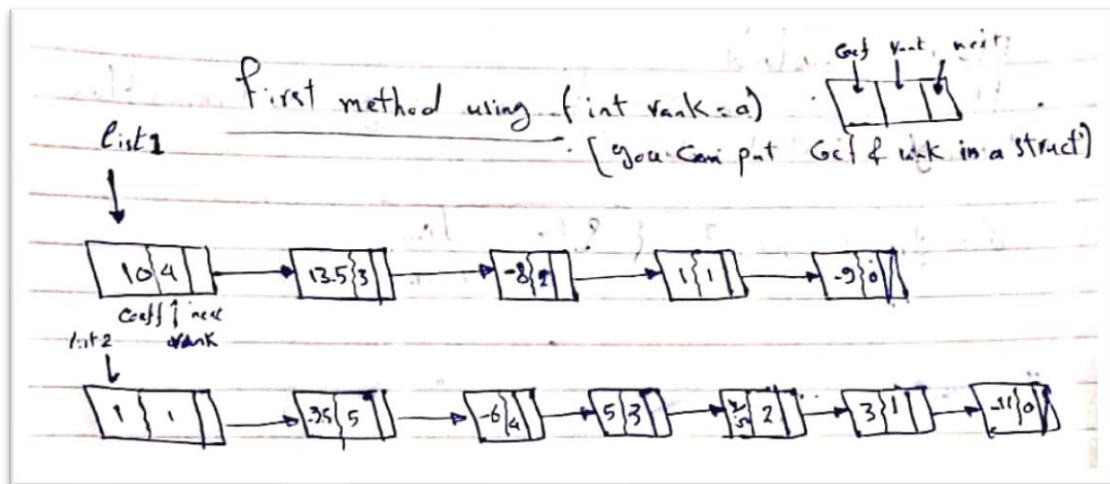 Coef rank next
first method using (int rank = a)
list 1
[you can put Coef & rank in a struct]
10 4
13.5 3
-8 2
1 1
-9 0
Coeff next
rank
list 2
1 1
-3.5 5
-6 4
5 3
2
3 1
-11 0